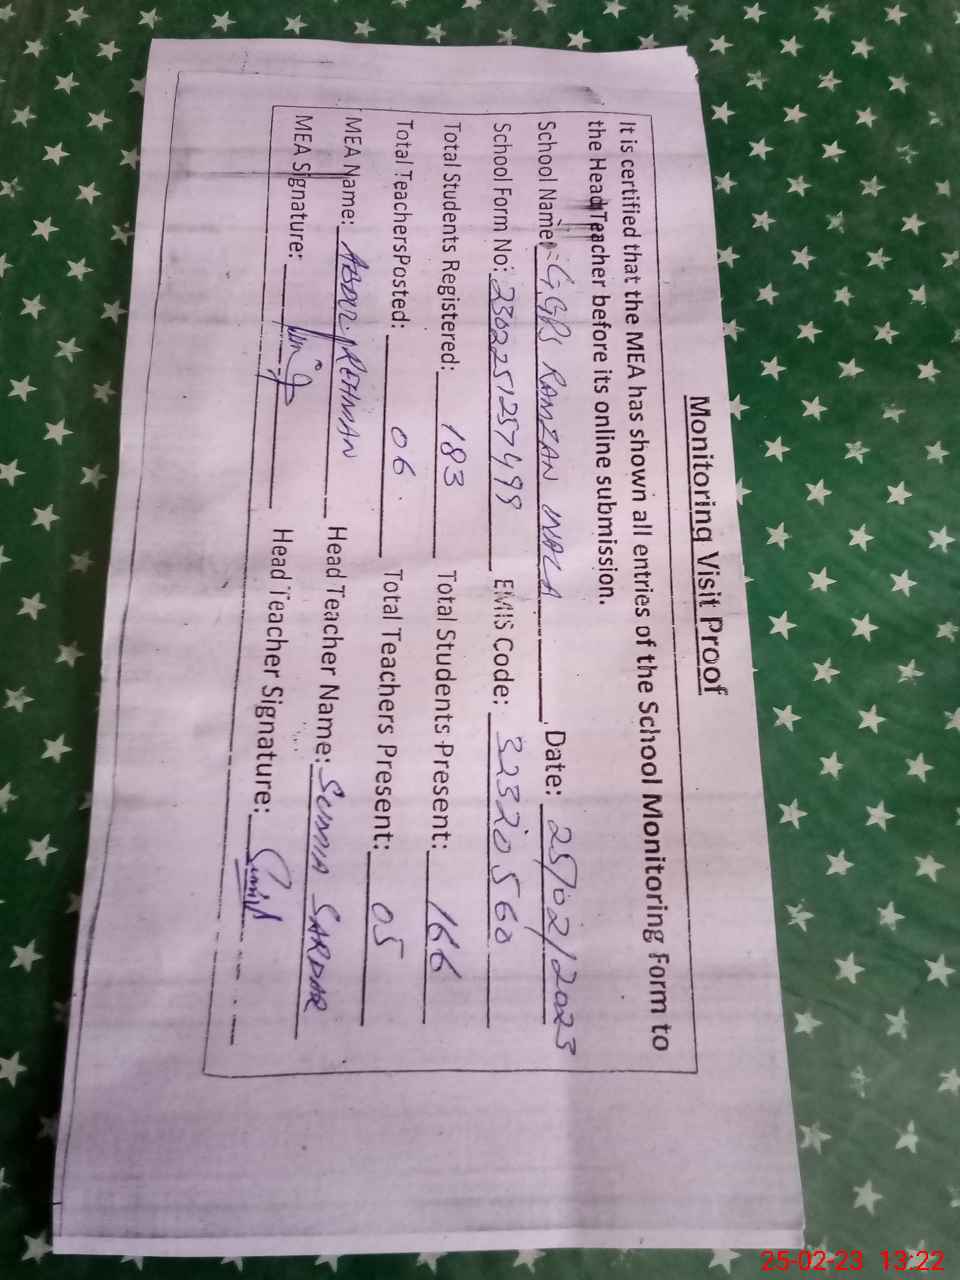 Monitoring Visit Proof
It is certified that the MEA has shown all entries of the School Monitoring Form to
the Head Teacher before its online submission.
School Name: GGPS RAMZAN WALA Date: 25/02/2023
School Form No: 2302251257499 EMIS Code: 33205560
Total Students Registered: 183 Total Students Present: 166
Total Teachers Posted: 06 Total Teachers Present: 05
MEA Name: ABDUL REHMAN Head Teacher Name: SUMIA SARDAR
MEA Signature: Head Teacher Signature:
25-02-23 13:22